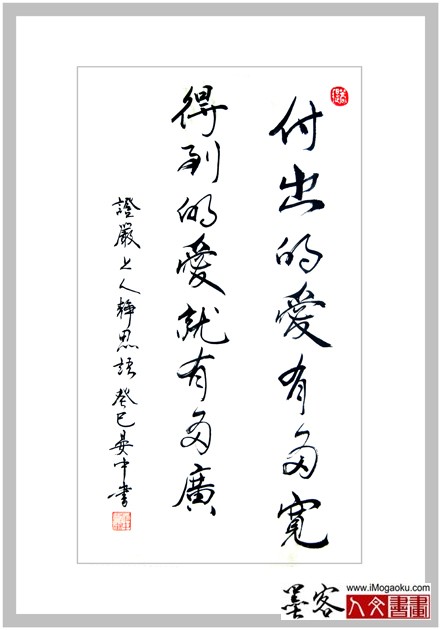 付出的愛有多寬
得到的愛就有多廣
證嚴上人靜思語 癸巳 晏中書
墨客
www.iMogaoku.com
人文書畫